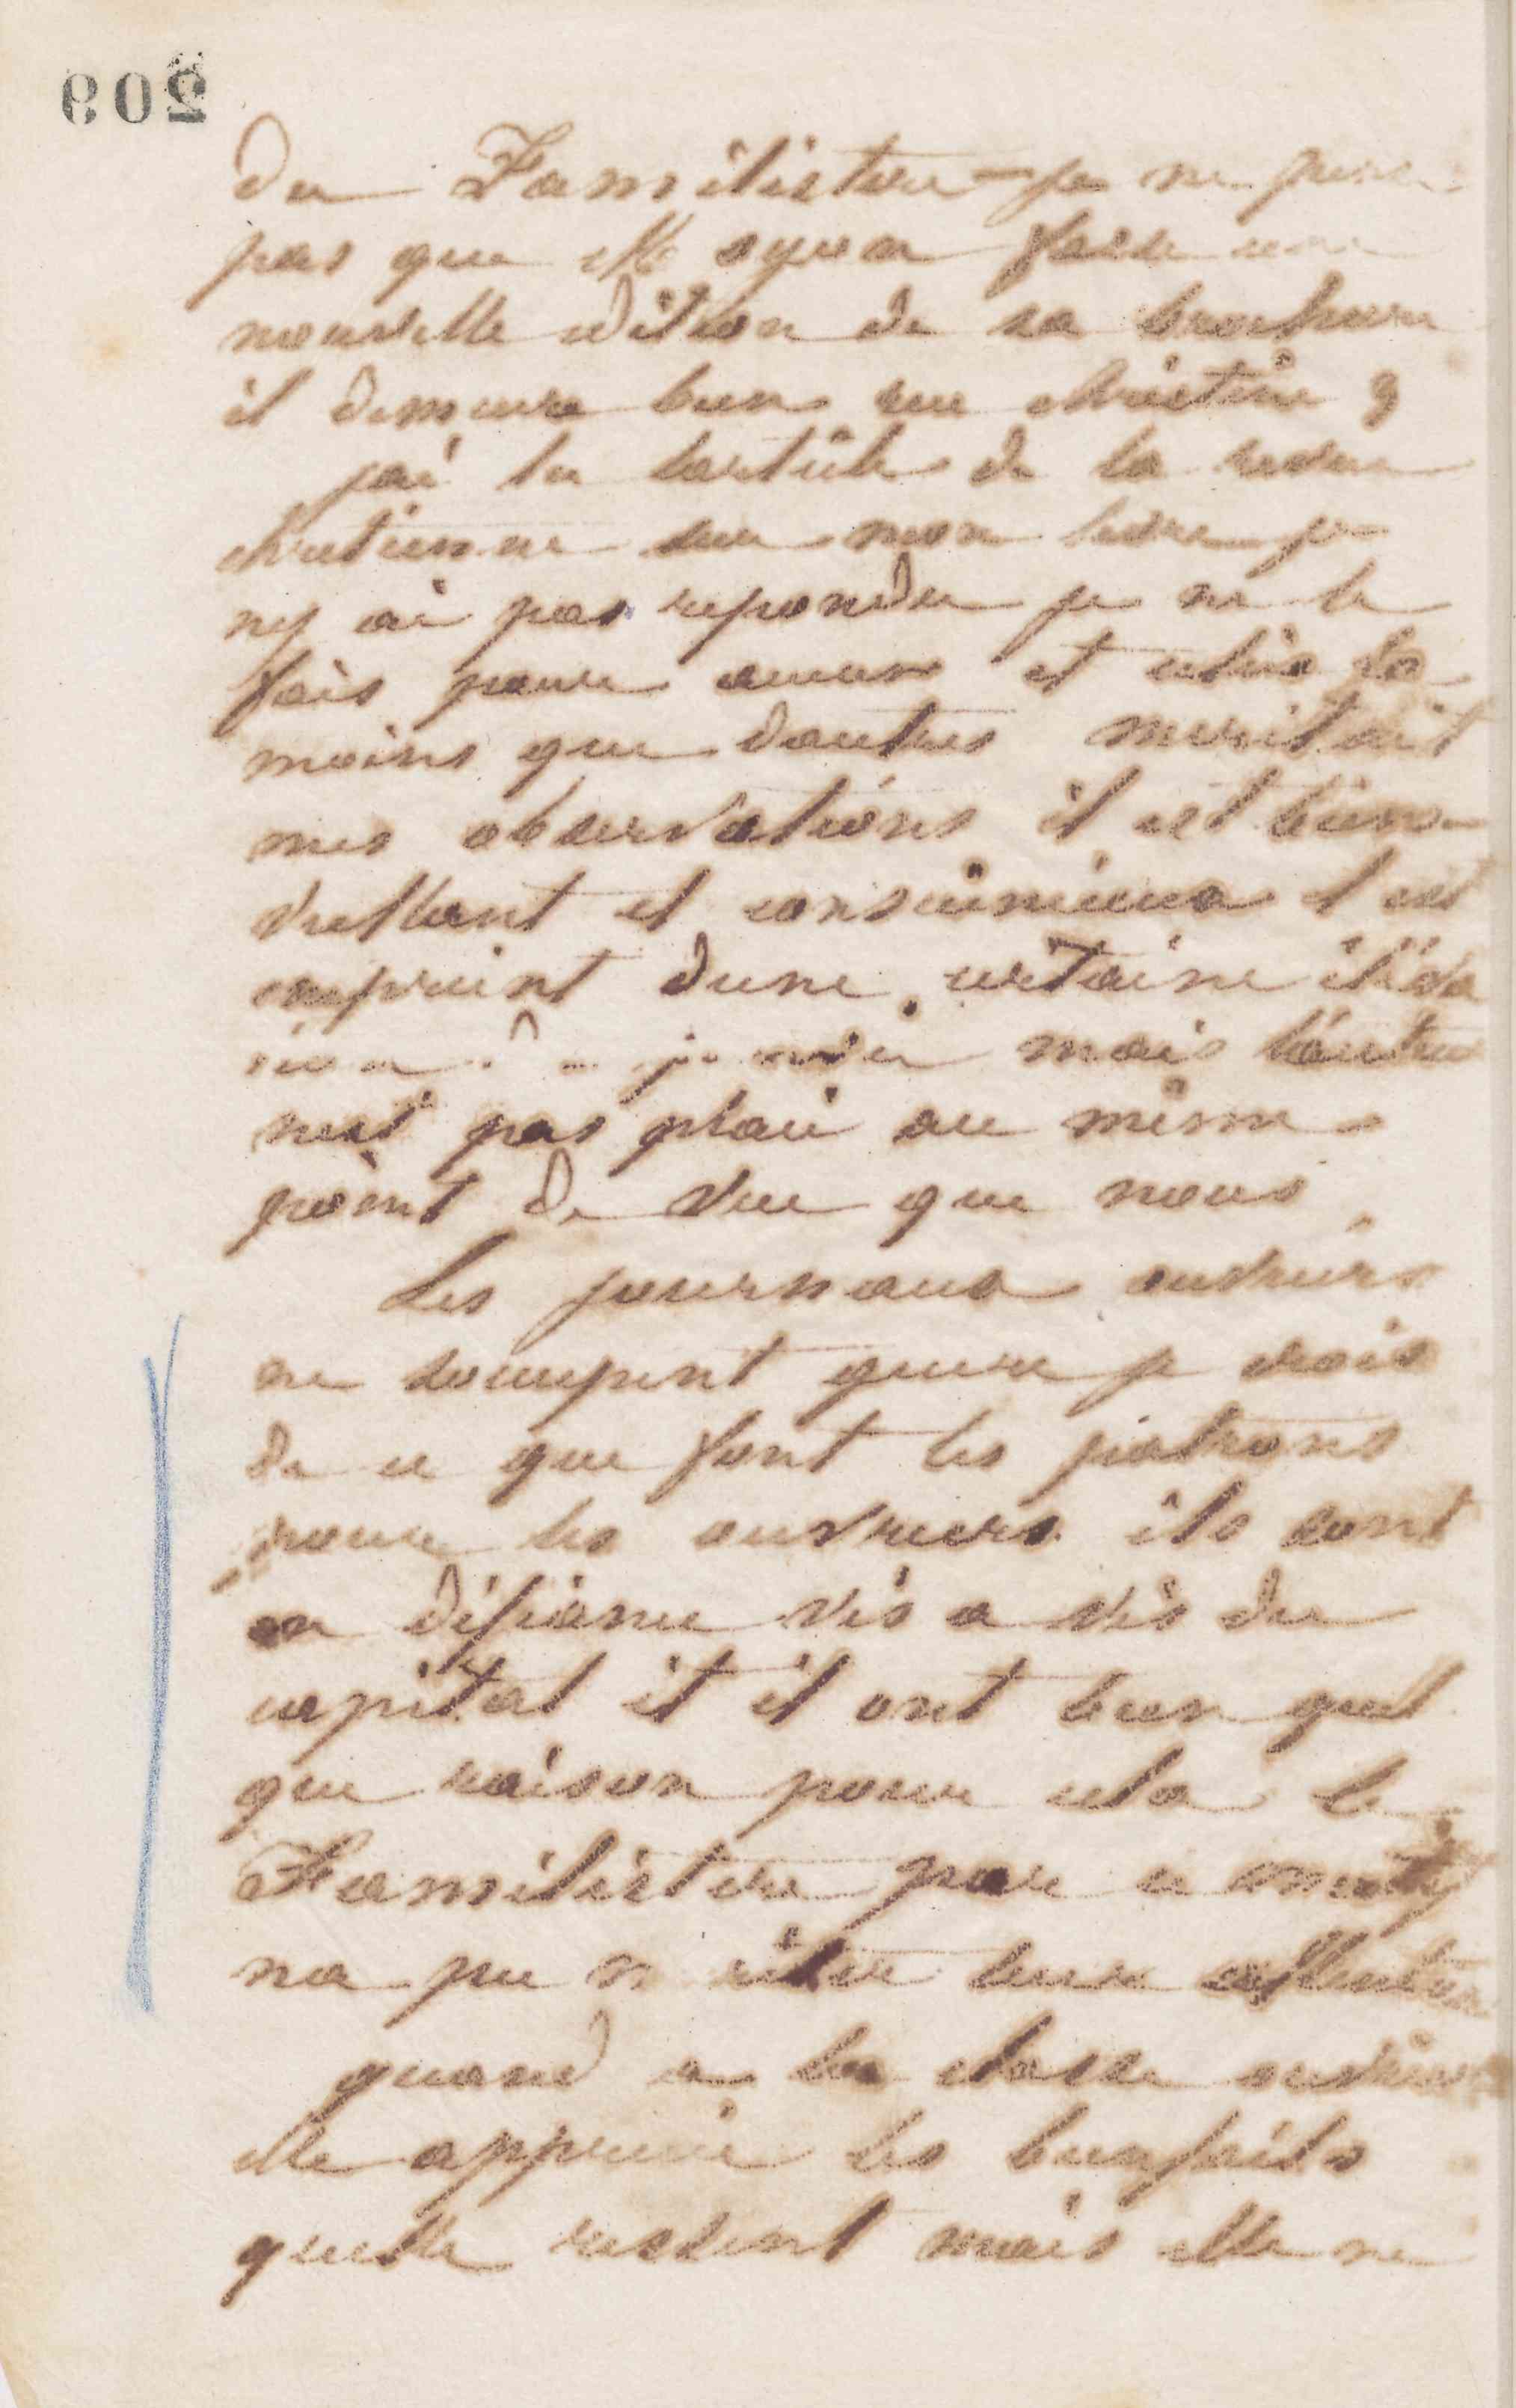 209
du Familistere je ne pense
pas que M oyon fasse une
nouvelle edition de sa brochure
il demeure bien rue christine 9
jai lu larticle de la revue
chretienne sur mon livre je
ny ai pas repondu je ne le
fais pour aucun et celui la
moins que dautres meritait
mes observations il est bien
veillant et consciencieux il est
empreint dune certaine éléva
mais lauteur
nest pas placé au même
point de vue que nous
Les journaux ouvriers
ne soccupent guere je crois
de ce que font les patrons
pour les ouvriers ils sont
en défiance vis a vis du
capital et il ont bien quel
que raison pour cela le
Familistere par ce
na pu leur attention
quand a la classe ouvriere
elle apprecie les bienfaits
quelle ressent mais elle ne